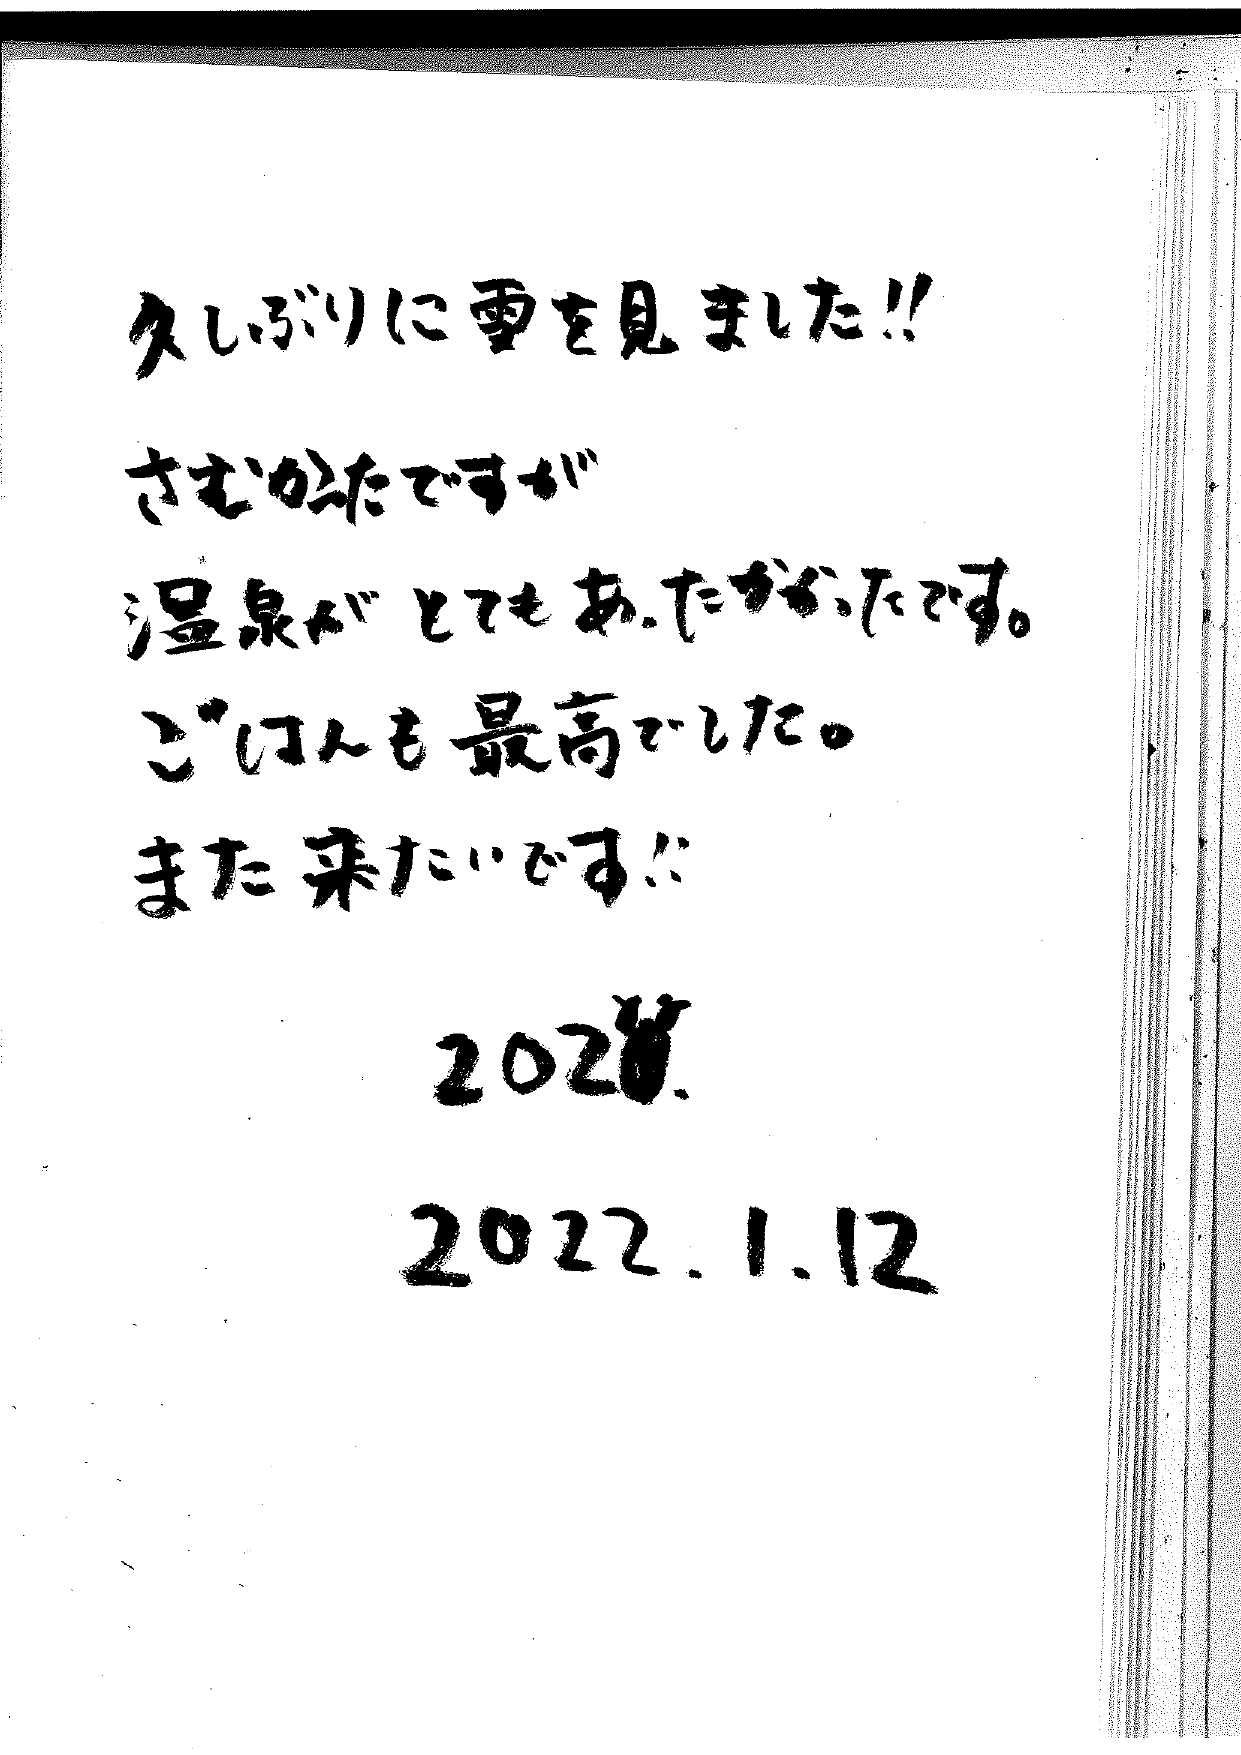 久しぶりに雪を見ました!!
さむかったですが
温泉がとてもあったかかったです。
ごはんも最高でした。
また来たいです!!
202
2022.1.12